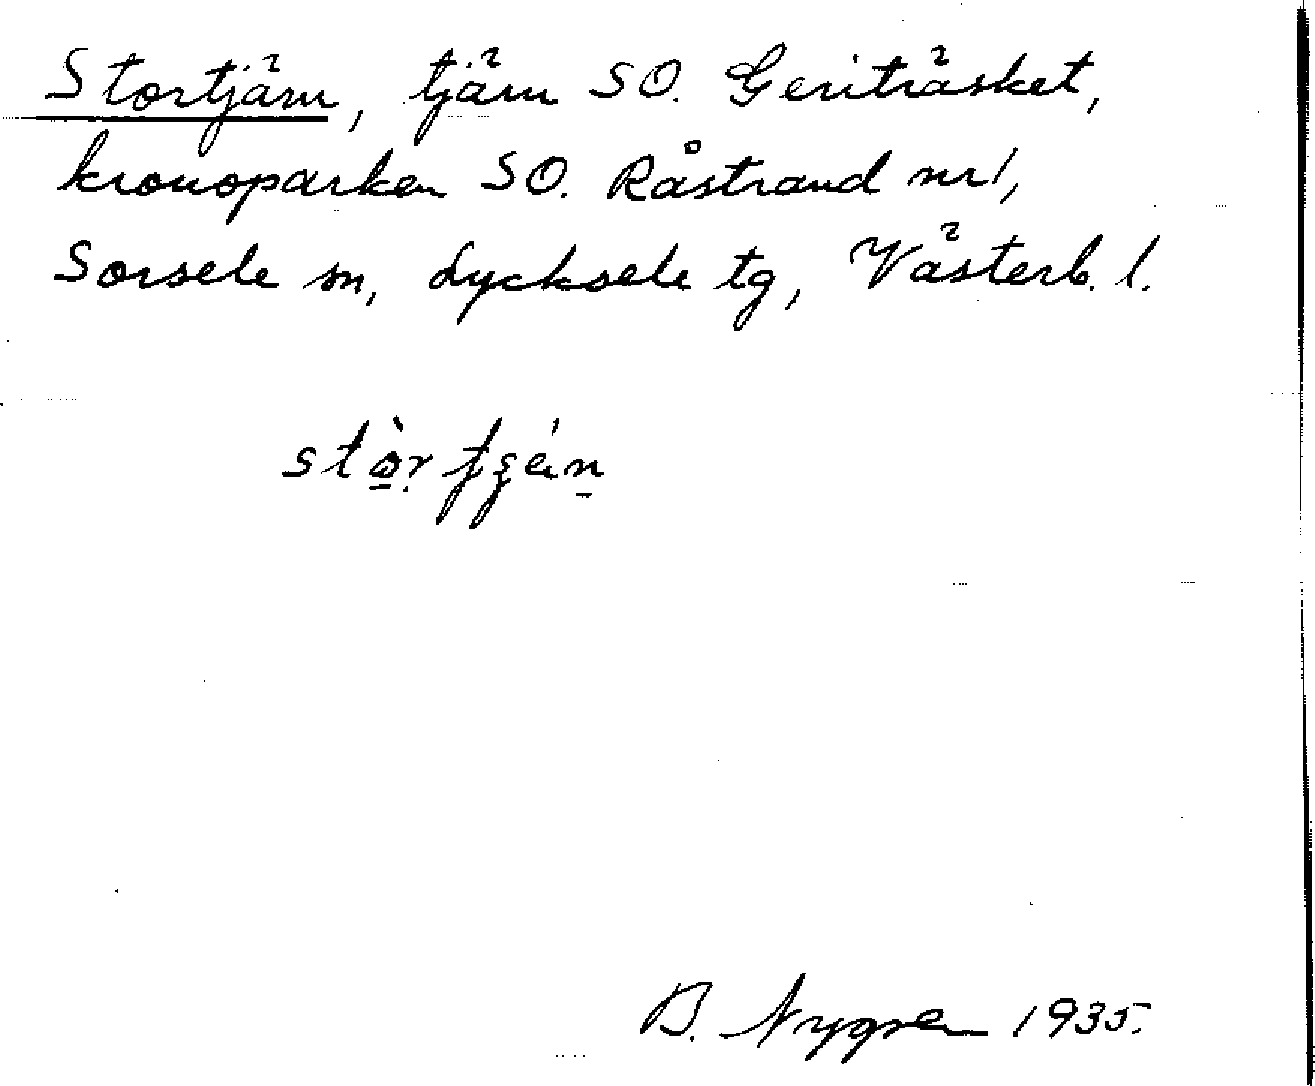 Stortjärn, tjärn SO. Geriträsket,
kronoparken SO. Råstrand nr 1,
Sorsele sn, Lycksele tg, Västerb. l.
B. Nygren 1935.